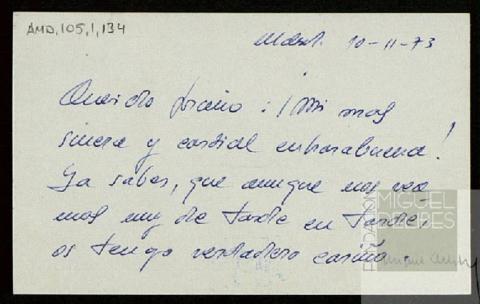 AMD,105,1,134
Madrid. 10-11-73
Querido : ¡Mi mas
sincera y cordial enhorabuena!
Ya sabes, que aunque nos vea
mos muy de tarde en tarde,
os tengo verdadero cariño
FUNDACIÓN
MIGUEL
DELIBES
Enrique